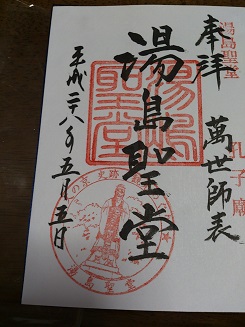 奉拝
湯島聖堂
孔子廟
萬世師表
湯島聖堂
湯島聖堂
史跡
湯島聖堂
平成二八年五月五日